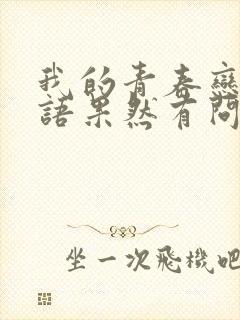 我的青春戀
語果然有問
坐一次飛機吧